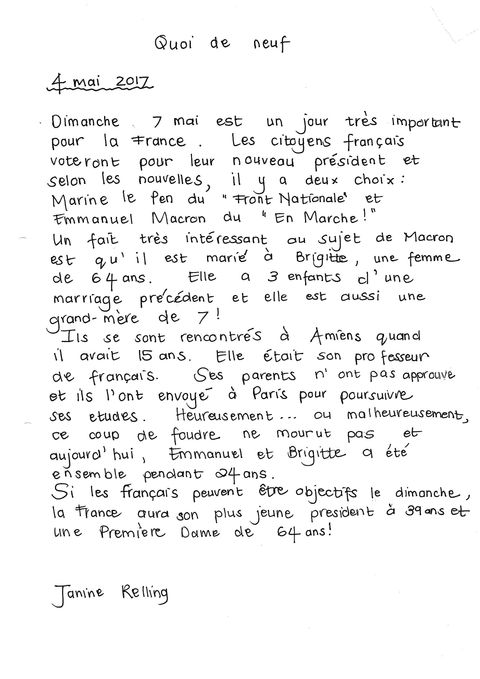 Quoi de neuf
4 mai 2017
Dimanche 7 mai est un jour très important
pour la France. Les citoyens français
voteront pour leur nouveau président et
selon les nouvelles, il y a deux choix:
Marine le Pen du "Front Nationale" et
Emmanuel Macron du "En Marche!"
Un fait très intéressant au sujet de Macron
est qu'il est marié à Brigitte, une femme
de 64 ans. Elle a 3 enfants d'une
marriage précédent et elle est aussi une
grand-mère de 7!
Ils se sont rencontrés à Amiens quand
il avait 15 ans. Elle était son professeur
de français. Ses parents n'ont pas approuve
et ils l'ont envoyé à Paris pour poursuivre
ses etudes. Heureusement... ou malheureusement,
ce coup de foudre ne mourut pas et
aujourd'hui, Emmanuel et Brigitte a été
ensemble pendant 24 ans.
Si les français peuvent être objectifs le dimanche,
la France aura son plus jeune president à 39 ans et
une Première Dame de 64 ans!
Janine Relling